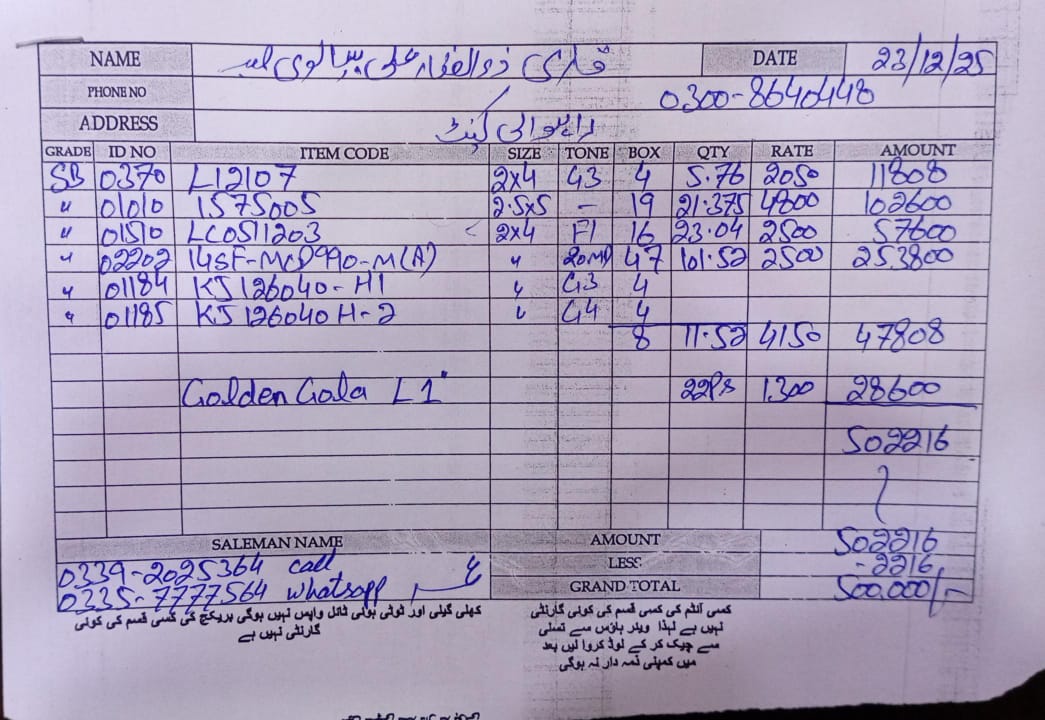 NAME قاری ذوالفقار علی DATE 23/12/25
PHONE NO 0300-8640448
ADDRESS راہوالی کینٹ
GRADE ID NO ITEM CODE SIZE TONE BOX QTY RATE AMOUNT
SB 0370 L12107 2x4 G3 4 5.76 2050 11808
" 01010 1575005 2.5x5 - 19 21.375 4800 102600
" 01510 LCO511203 2x4 F1 16 23.04 2500 57600
" 02202 14SF-MCD990-M(A) " 47 101.52 2500 253800
" 01184 KJ126040-H1 " G3 4
" 01185 KJ126040H-2 " G4 4
8 11.52 4150 47808
Golden Gala L1" 22Ps 1300 28600
502216
SALEMAN NAME AMOUNT 502216
0339-2025364 call LESS -2216
0335-7777564 whatsapp GRAND TOTAL 500,000/-
کھلی گیلی اور ٹوٹی ہوئی ٹائل واپس نہیں ہوگی بریکج کی کسی قسم کی کوئی
گارنٹی نہیں ہے
کسی آئٹم کی کسی قسم کی کوئی گارنٹی
نہیں ہے لہذا ویئر ہاؤس سے تسلی
سے چیک کر کے لوڈ کروا لیں بعد
میں کمپنی ذمہ دار نہ ہوگی